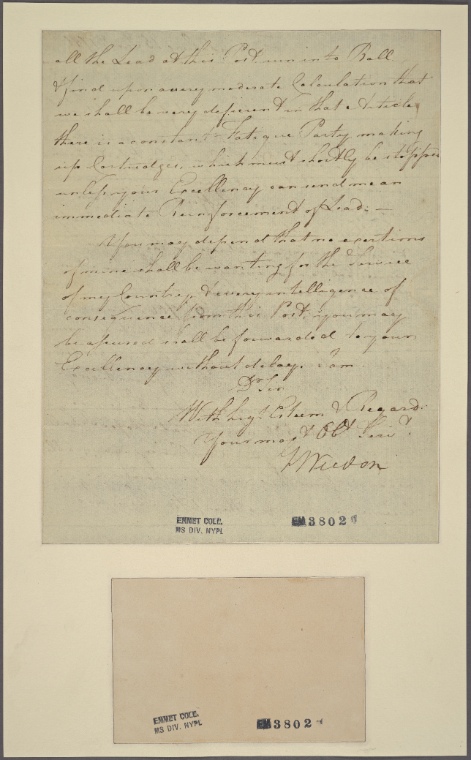 all the Lead at this Post run into Ball
& find upon a very moderate Calculation that
we shall be very deficient in that Article,
there is a constant Fatigue Party making
up Cartridges, which must shortly be stopped
unless your Excellency can send me an
immediate Reinforcement of Lead. —
You may depend that no exertions
of mine shall be wanting for the Service
of my Country, & every intelligence of
consequence from this Post, you may
be assured shall be forwarded to your
Excellency without delay. I am
Dr Sir
With high Esteem & Regard
Your most Obt Servt
G Weedon
EMMET COLL.
MS DIV. NYPL
EM 3802
EMMET COLL.
MS DIV. NYPL
EM 3802